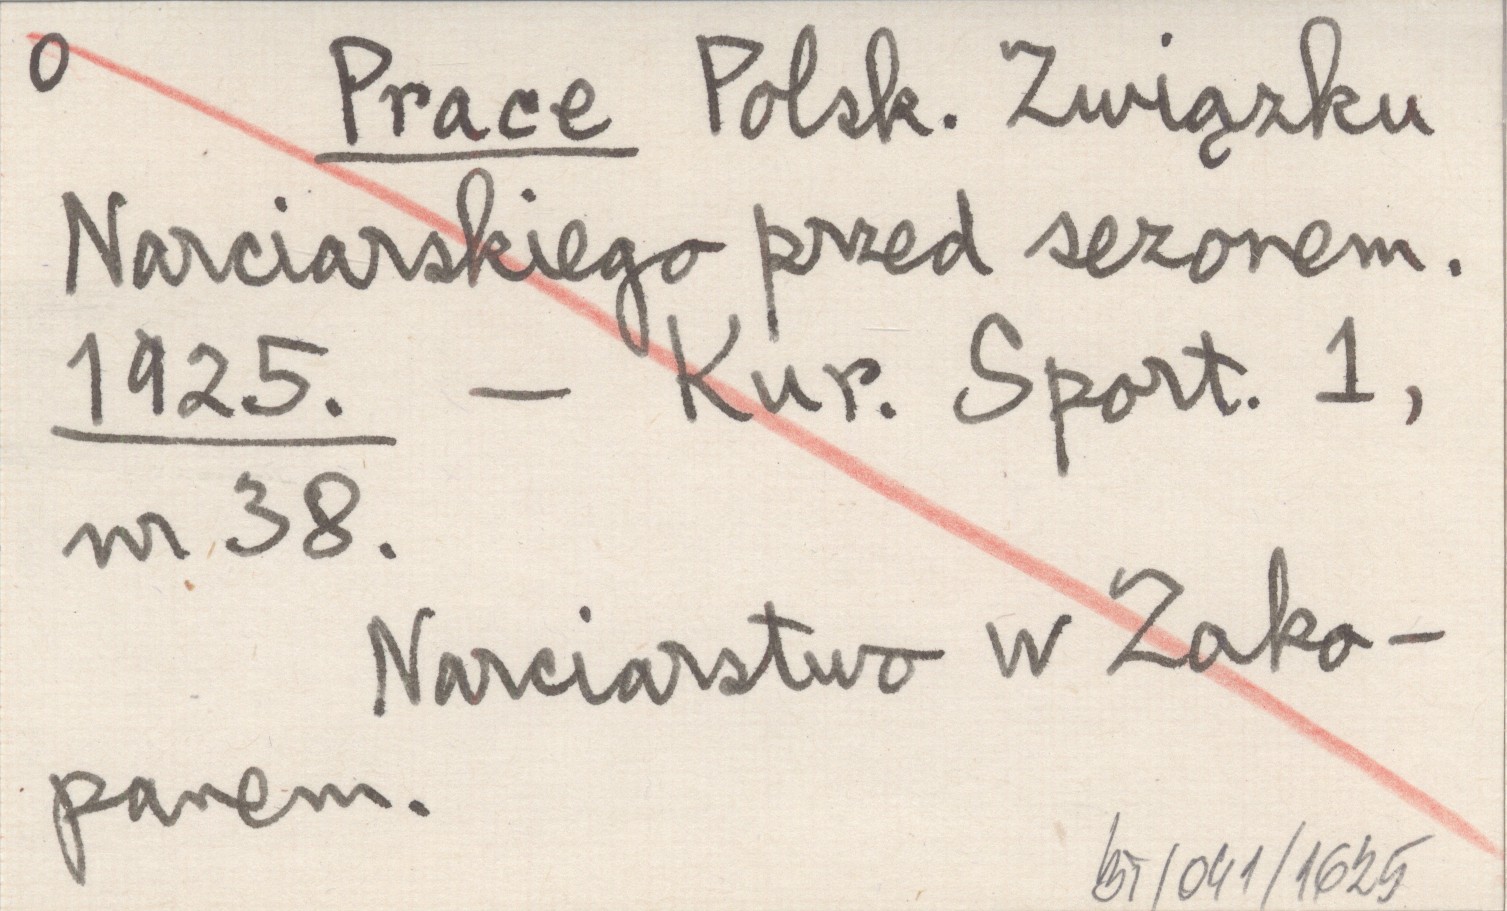 O Prace Polsk. Związku
Narciarskiego przed sezonem.
1925. — Kur. Sport. 1,
nr 38.
Narciarstwo w Zako-
panem.
BT/041/1625